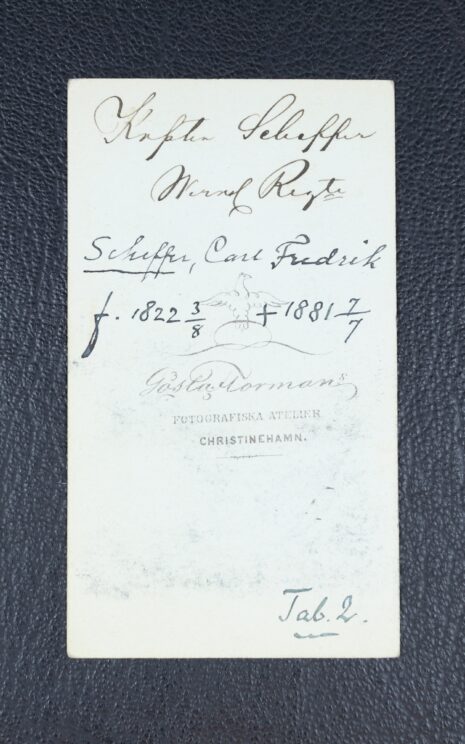 Kapten Scheffer
Werml Regte
Scheffer, Carl Fredrik
f. 1822 3/8 + 1881 7/7
Gösta Florman's
FOTOGRAFISKA ATELIER
CHRISTINEHAMN.
Tab. 2.